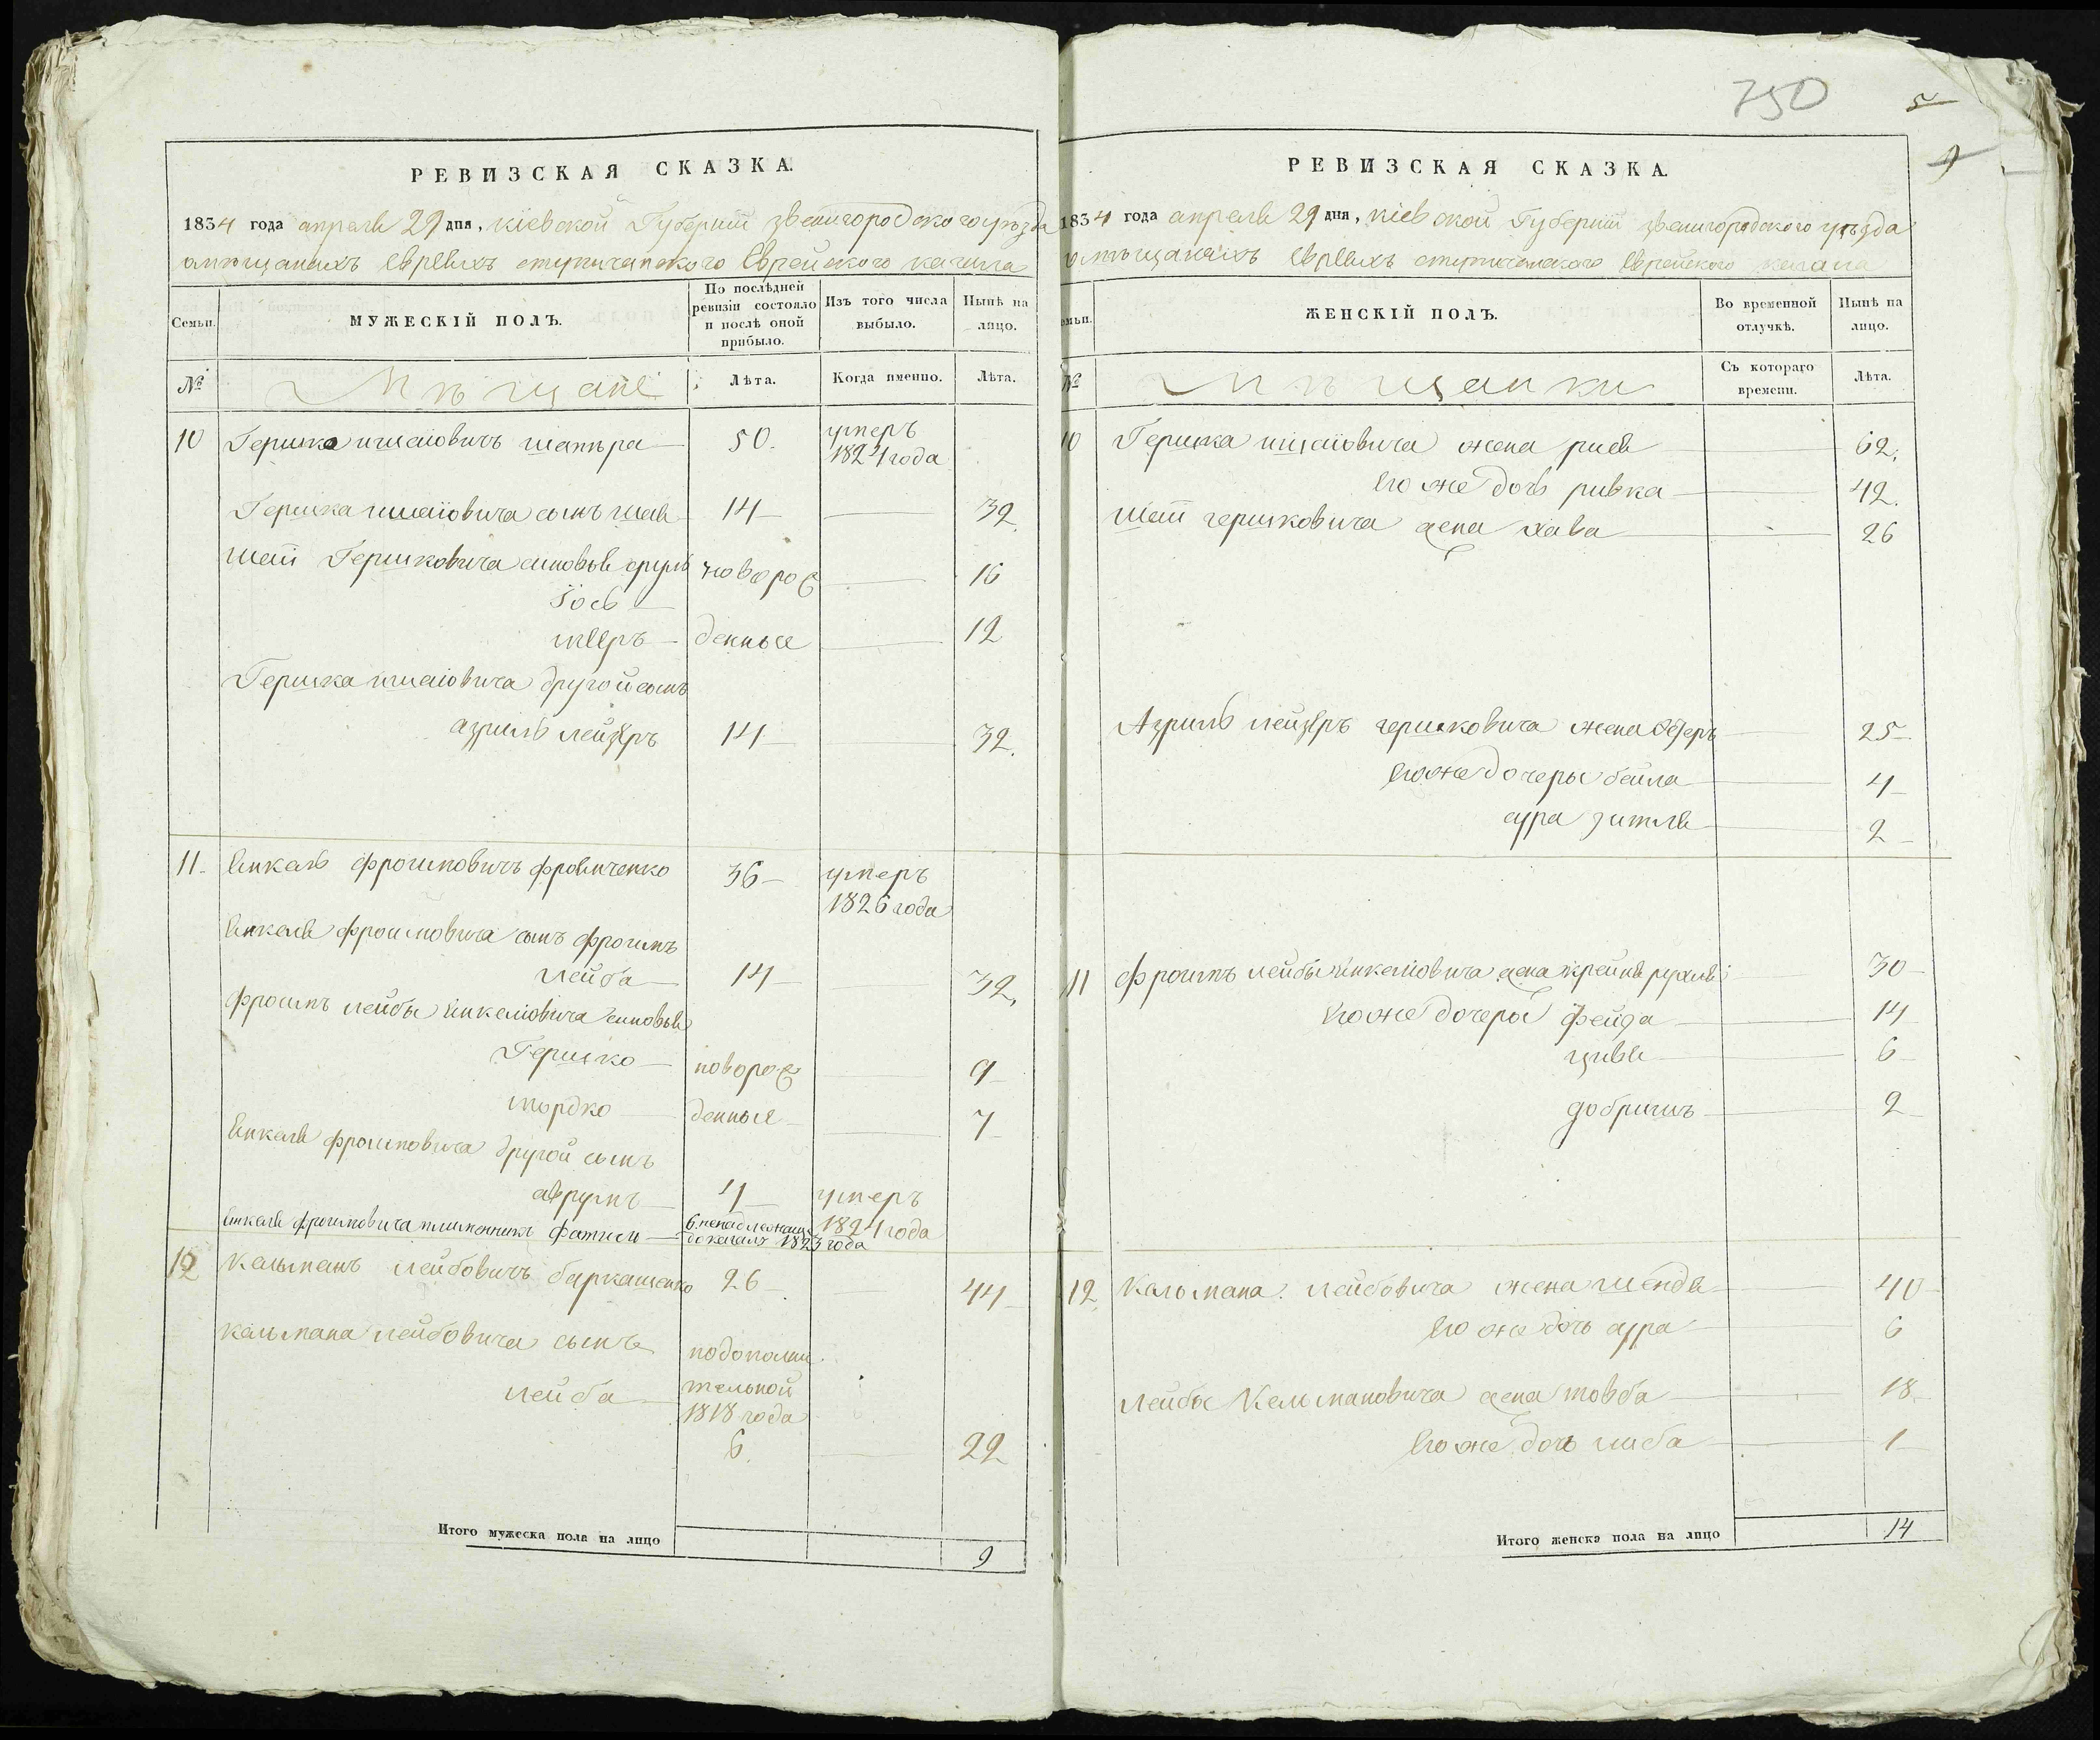 750
5
РЕВИЗСКАЯ СКАЗКА.
1834 года апреля 29 дня, кіевской Губерніи звенигородского уѣзда
омѣщанахъ Евреяхъ Еврейского кагала
Семьи.
МУЖЕСКІЙ ПОЛЪ.
По послѣдней ревизіи состояло и послѣ оной прибыло.
Изъ того числа выбыло.
Нынѣ на лицо.
№
Мѣщане
Лѣта.
Когда именно.
Лѣта.
10 Гершко 50. умеръ
1824 года
Гершка сынъ 14 32
Гершковича сыновья сруль новорож 16
Іось
мееръ денные 12
Гершка другой сынъ
азриль лейзеръ 14 32.
11. Янкель фроимовичъ 36 умеръ
1826 года
Янкеля фроимовича сынъ фроимъ
лейба 14 32.
фроимъ лейбы Янкеліовича сыновья
Гершко новорож 9
мордко денные 7
Янкеля фроимовича другой сынъ
аврумъ 4 умеръ
1824 года
Янкеля фроимовича племенникъ 1823 года
12 Кальманъ лейбовичъ 26 44
кальмана лейбовича сынъ подополни
лейба тельной
1818 года
6. 22
Итого мужеска пола на лицо 9
РЕВИЗСКАЯ СКАЗКА.
1834 года апреля 29 дня, кіевской Губерніи звенигородского уѣзда
омѣщанахъ Евреяхъ Еврейского кагала
емьи.
ЖЕНСКІЙ ПОЛЪ.
Во временной отлучкѣ.
Нынѣ на лицо.
№
Мѣщанки
Съ котораго времени.
Лѣта.
10 Гершка жена 62.
Его же дочь ривка 42.
гершковича жена хава 26
Азриль лейзеръ гершковича жена 25
Его же дочеры бейла 4
сура 2
11 фроимъ лейбы Янкеліовича жена крейня рухля 30
Его же дочеры фейга 14
цивя 6
добришъ 2
12. Кальмана лейбовича жена шендя 40
Его же дочь сура 6
Лейбы Кельмановича жена товба 18
Его же дочь либа 1
Итого женска пола на лицо 14